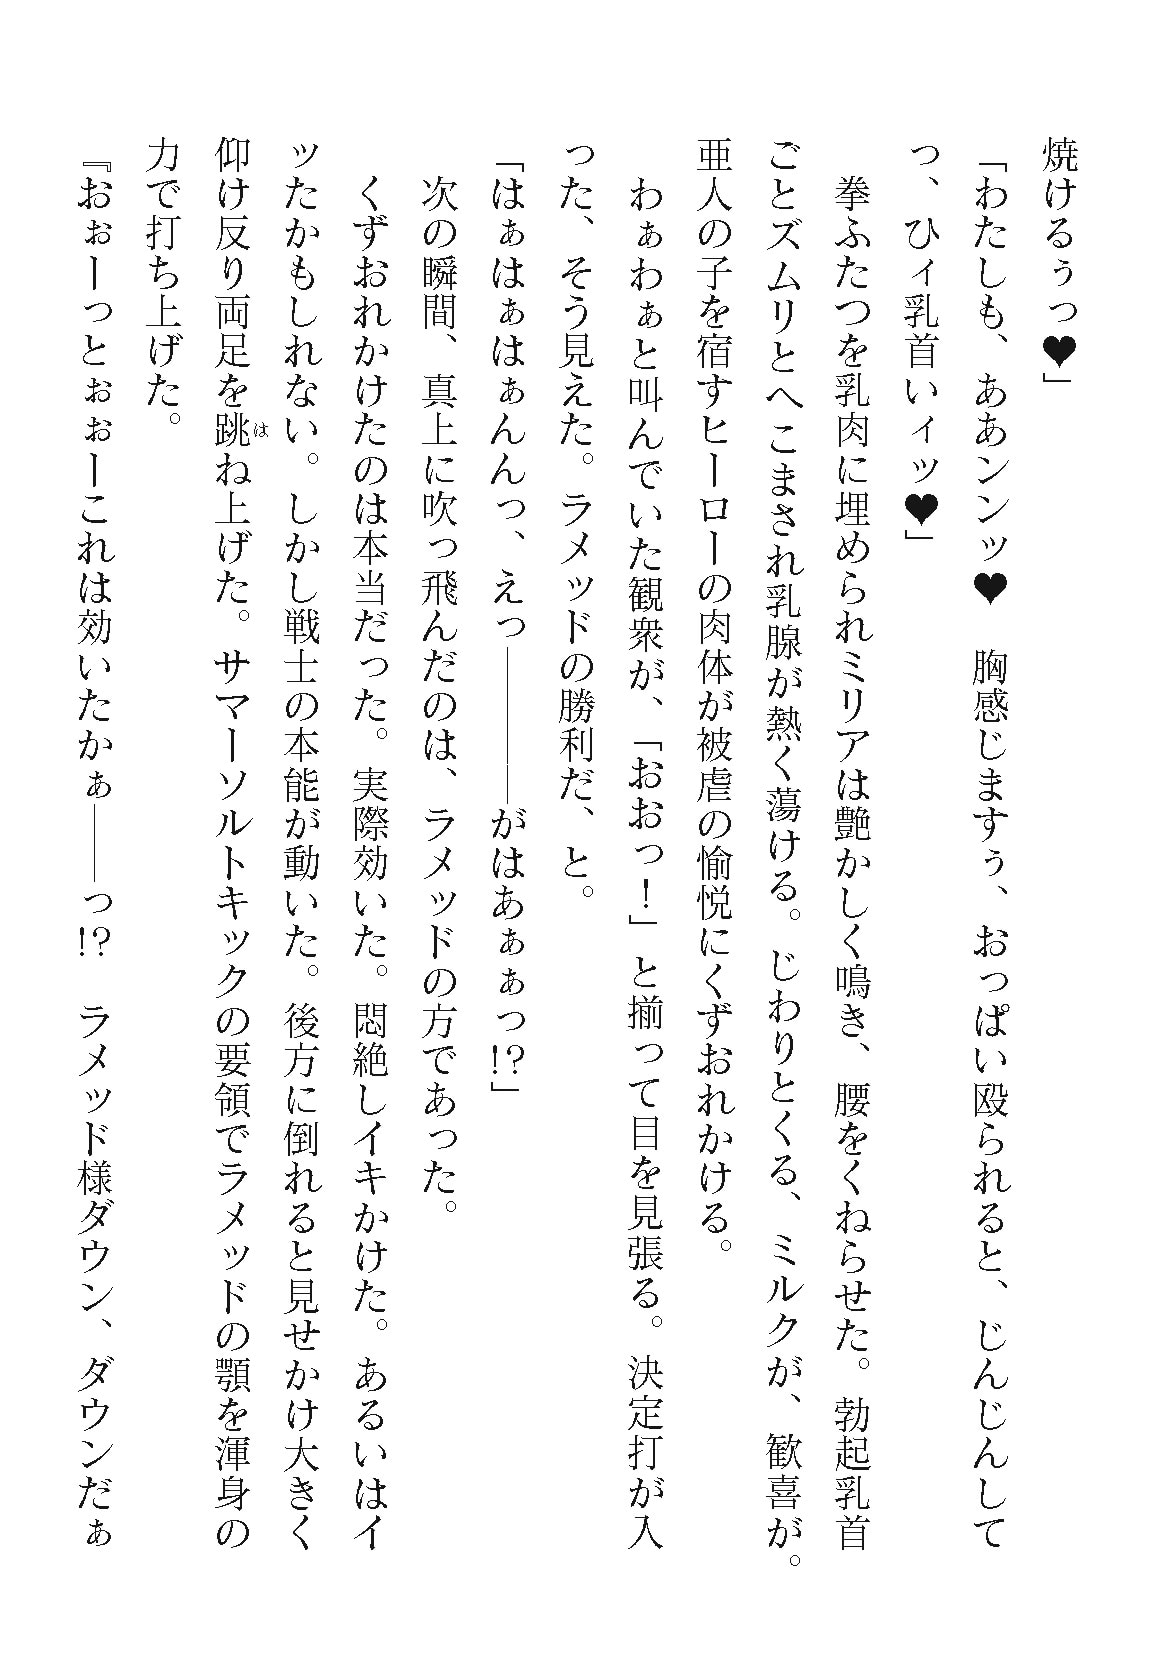 焼けるぅっ♥」
「わたしも、ああンンッ♥　胸感じますぅ、おっぱい殴られると、じんじんして
っ、ひィ乳首いィッ♥」
　拳ふたつを乳肉に埋められミリアは艶かしく鳴き、腰をくねらせた。勃起乳首
ごとズムリとへこまされ乳腺が熱く蕩ける。じわりとくる、ミルクが、歓喜が。
亜人の子を宿すヒーローの肉体が被虐の愉悦にくずおれかける。
　わぁわぁと叫んでいた観衆が、「おおっ！」と揃って目を見張る。決定打が入
った、そう見えた。ラメッドの勝利だ、と。
「はぁはぁはぁんんっ、えっ――――がはあぁぁっ!?」
　次の瞬間、真上に吹っ飛んだのは、ラメッドの方であった。
　くずおれかけたのは本当だった。実際効いた。悶絶しイキかけた。あるいはイ
ッたかもしれない。しかし戦士の本能が動いた。後方に倒れると見せかけ大きく
仰け反り両足を跳ね上げた。サマーソルトキックの要領でラメッドの顎を渾身の
力で打ち上げた。
『おぉーっとぉぉーこれは効いたかぁ――っ!?　ラメッド様ダウン、ダウンだぁ